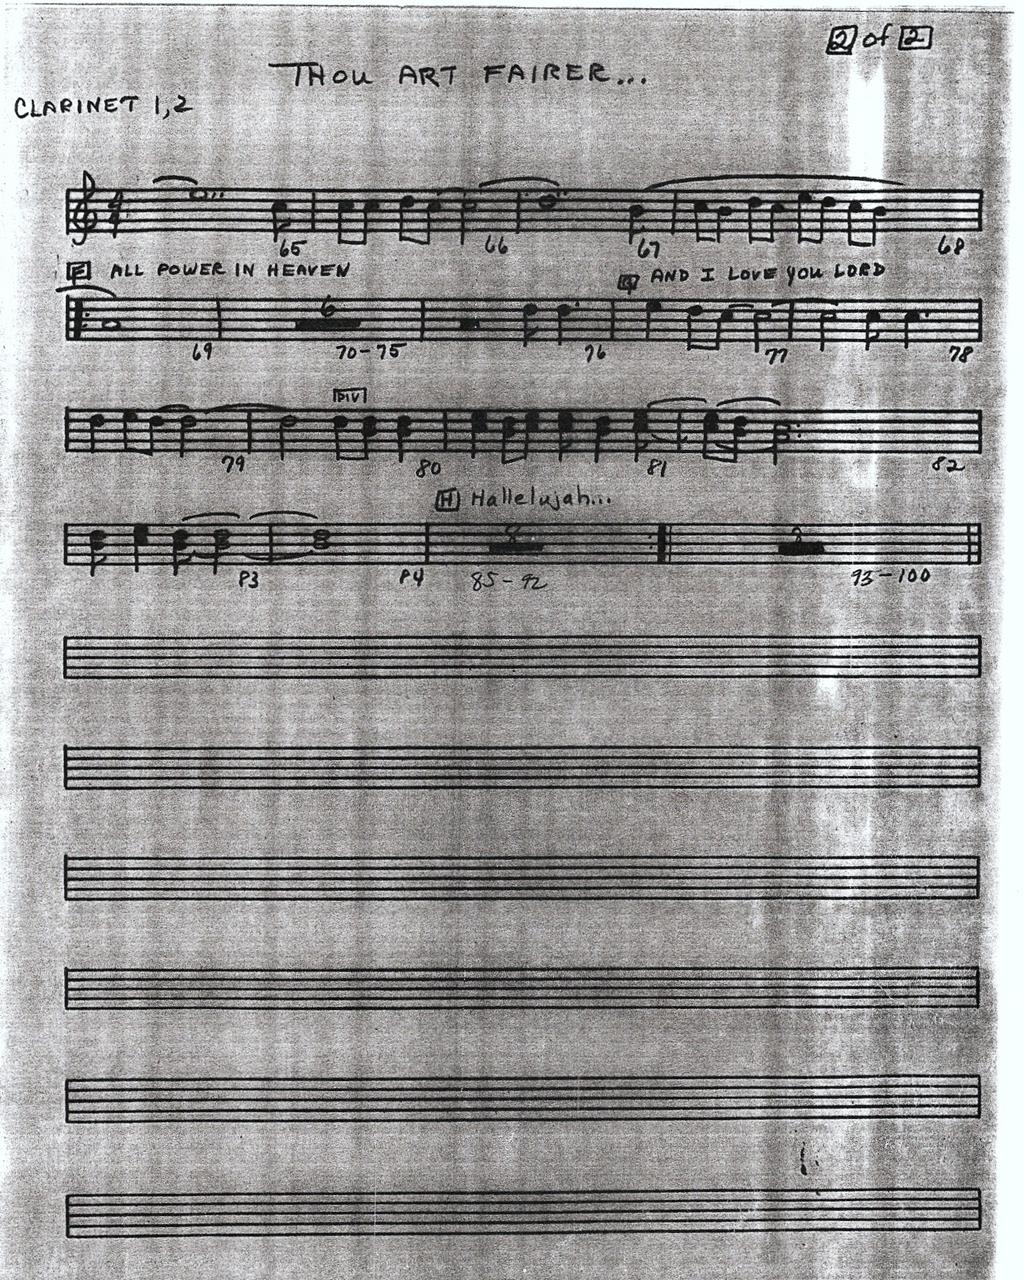 2 of 2
THOU ART FAIRER...
CLARINET 1,2
65 66 67 68
F ALL POWER IN HEAVEN
G AND I LOVE YOU LORD
6
69 70-75 76 77 78
DIV
79 80 81 82
H Hallelujah...
8 8
83 84 85-92 93-100